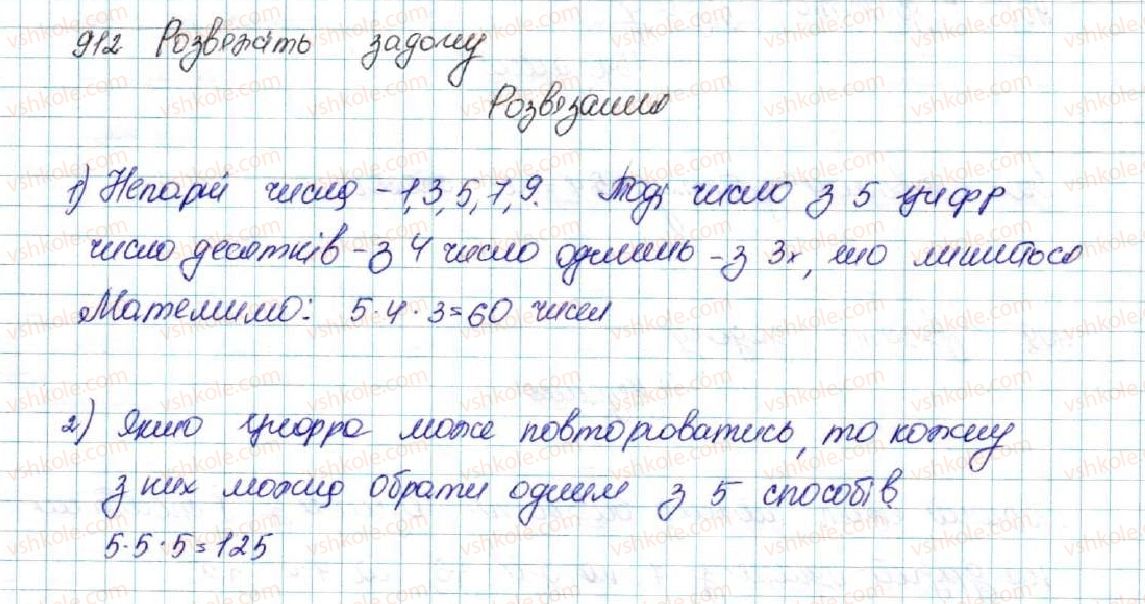 912 Розв'яжіть задачу
Розв'язання
1) Непарні числа - 1,3,5,7,9. Тоді число з 5 цифр
число десятків - з 4 число одиниць - з 3х, що лишиться
Матемимо: 5·4·3=60 чисел
2) Якщо цифра може повторюватись, то кожну
з них можна обрати одним з 5 способів
5·5·5=125